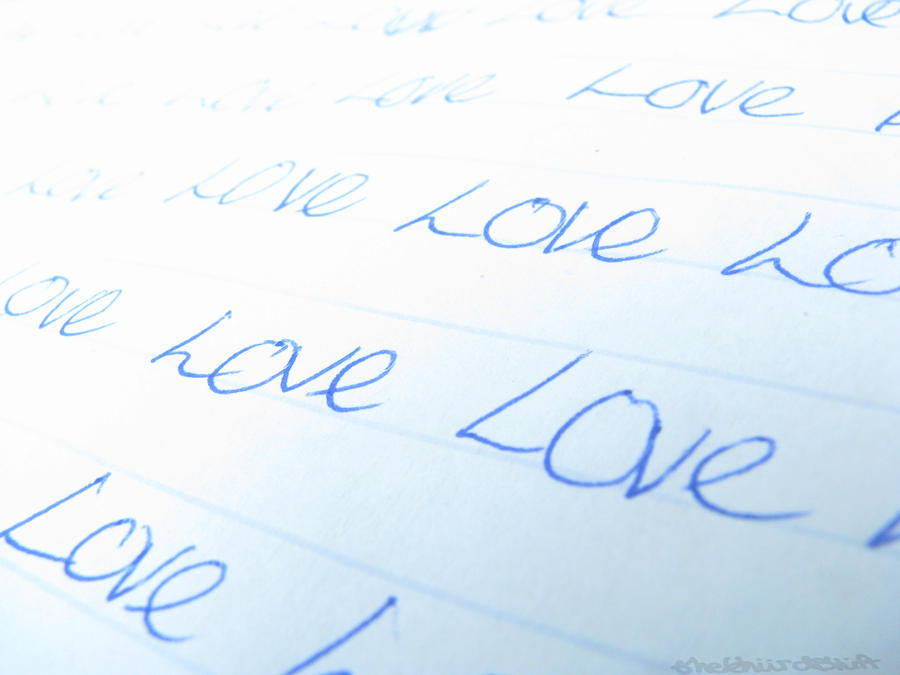 Love Love Love
Love Love Love Love
Love Love Love Lo
Love Love Love
Love L